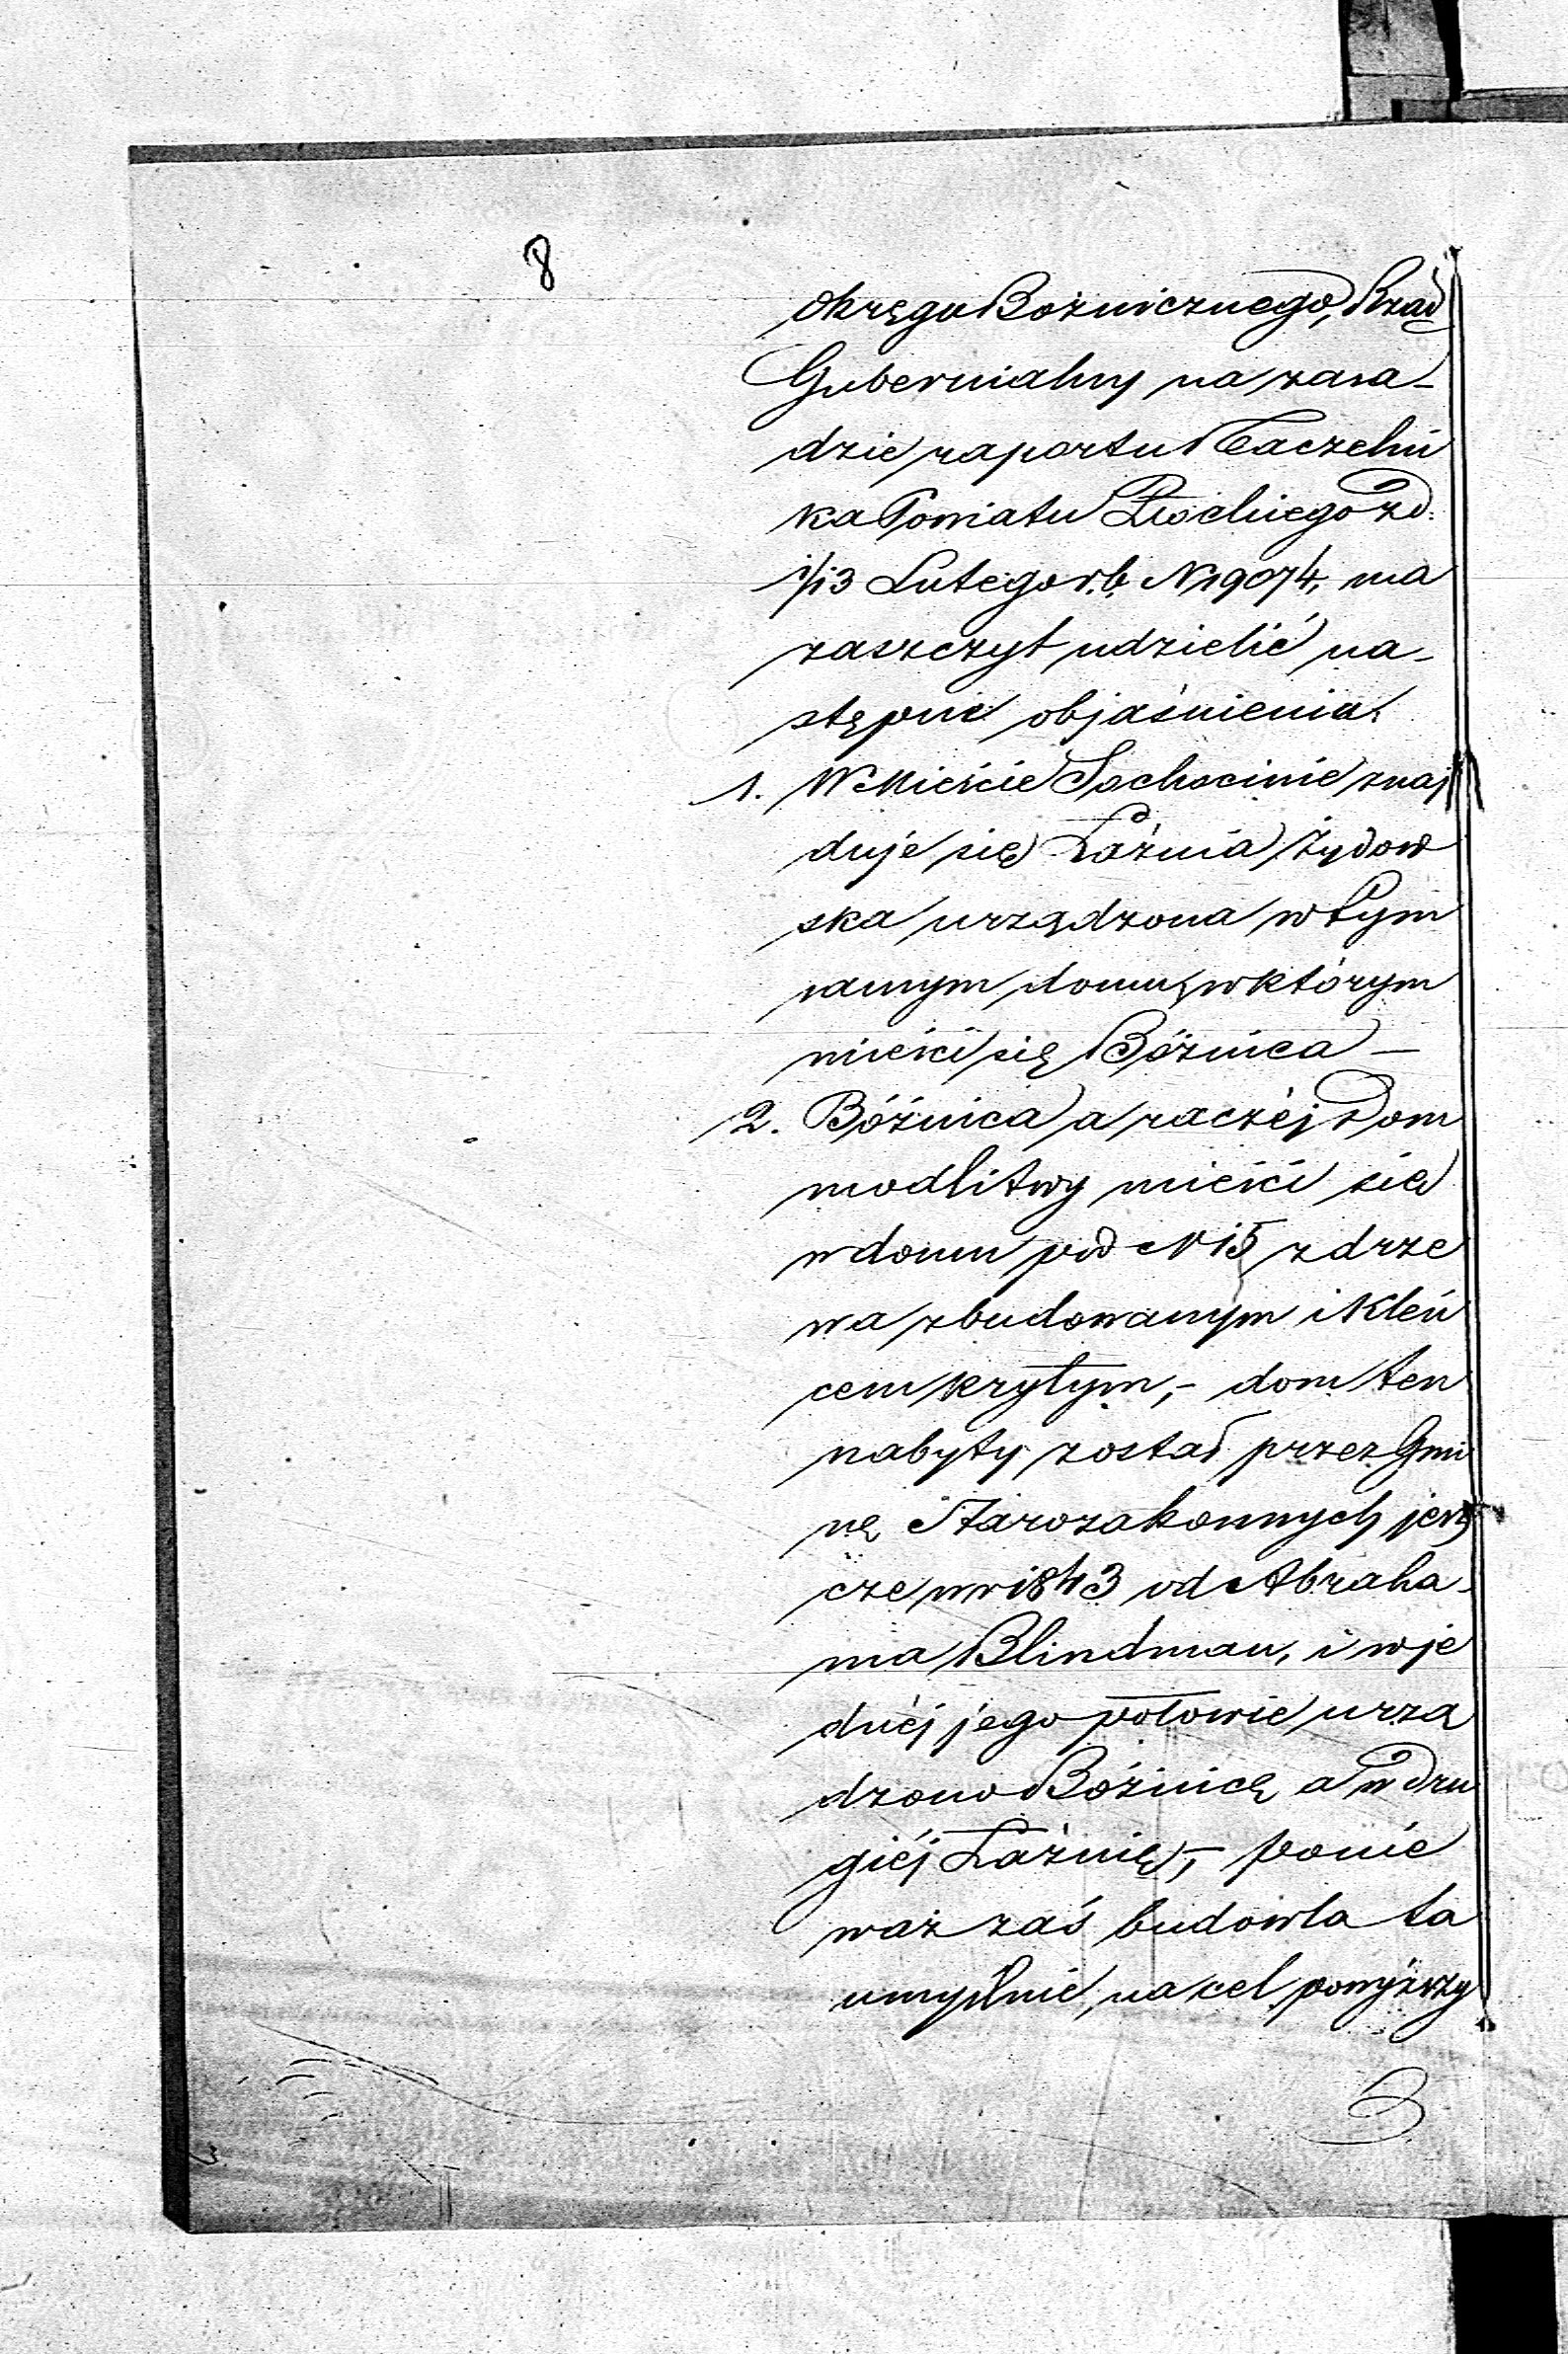 8
Okręgu Bożnicznego, Rząd
Gubernialny na zasa-
dzie raportu Naczelni
ka Powiatu Płockiego z d.
1/13 Lutego r.b. N 19074, ma
zaszczyt udzielić na-
stępne objaśnienia.
1. W Mieście Sochocinie znaj
duje się Łaźnia Żydow
ska urządzona w tym
samym domu, w którym
mieści się Bóżnica —
2. Bóżnica a raczéj Dom
modlitwy mieści się
w domu pod N 15 z drze
wa zbudowanym i kleń
cem krytym, - dom ten
nabyty został przez Gmi
nę Starozakonnych jesz
cze w r 1843 od Abraha-
ma Blindman, i w je
dnéj jego połowie urzą
dzono Bóżnicę a w dru
giéj Łaźnię, - ponie
waż zaś budowla ta
umyślnie na cel powyższy